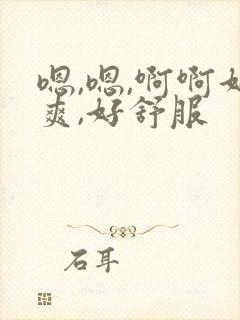 嗯,嗯,啊啊好
爽,好舒服
石耳